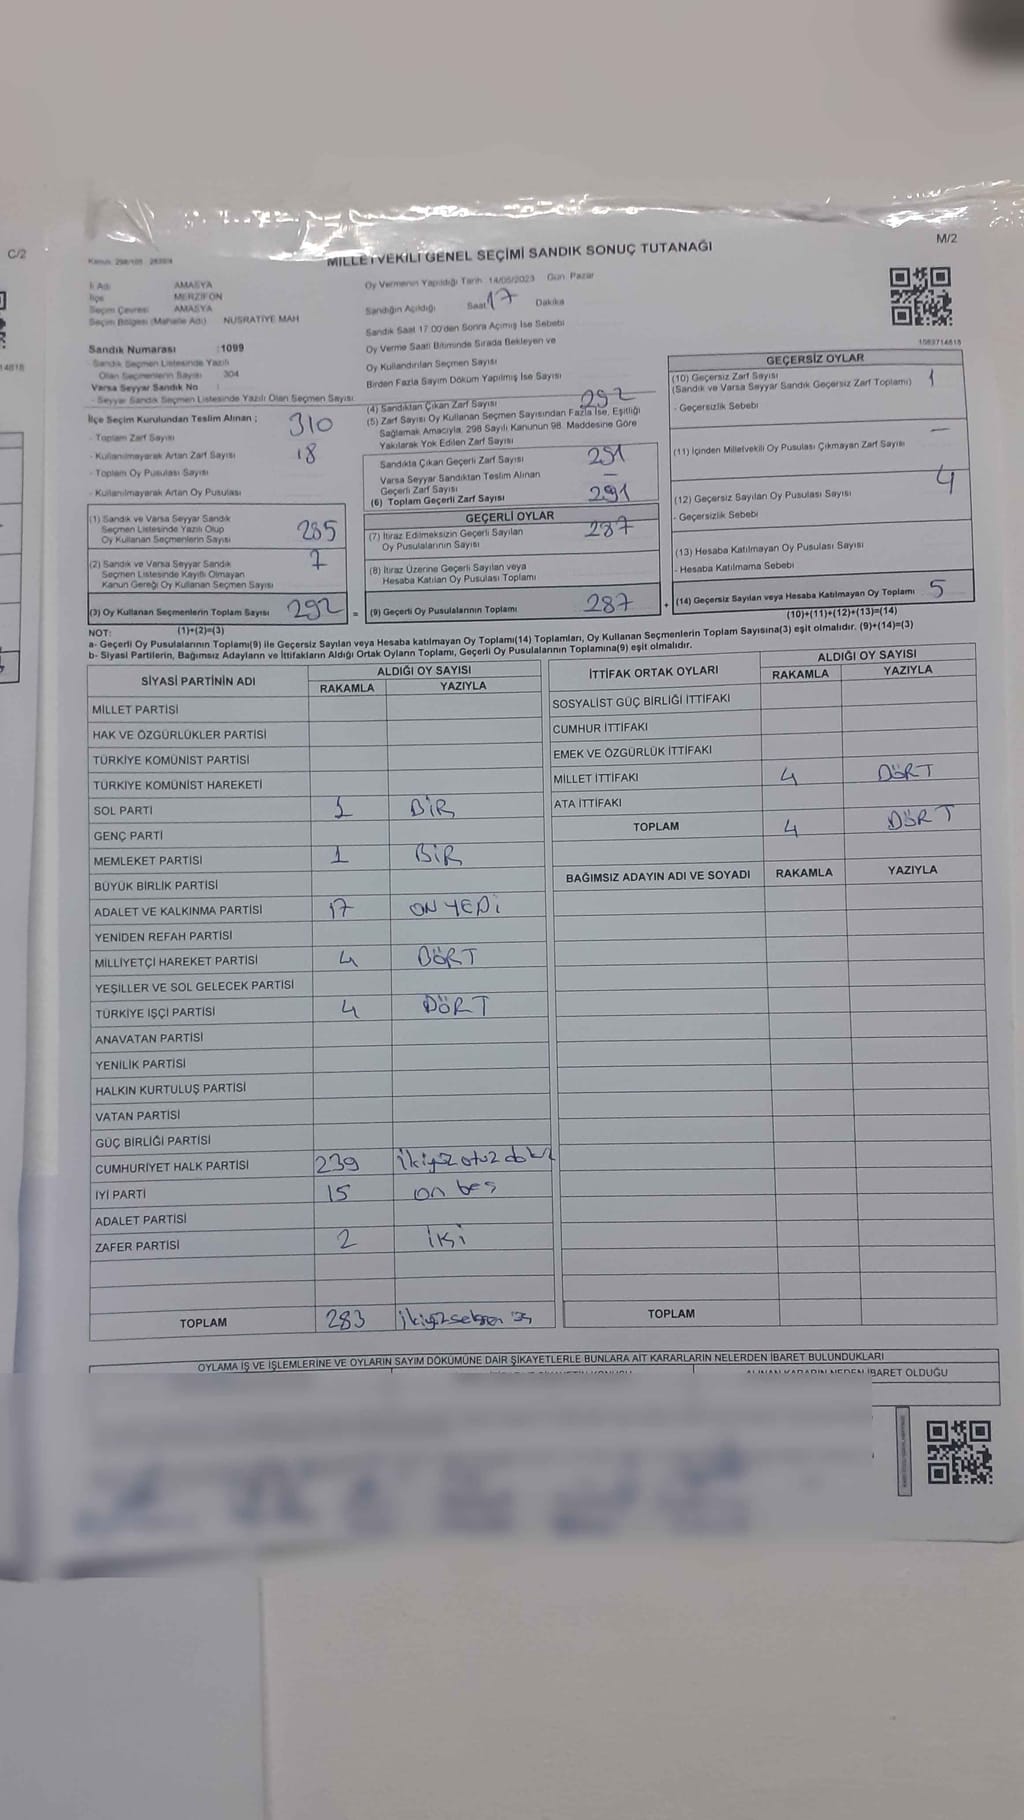 C/2
14818
M/2
MİLLETVEKİLİ GENEL SEÇİMİ SANDIK SONUÇ TUTANAĞI
İl Adı AMASYA
İlçe MERZİFON
Seçim Çevresi AMASYA
Seçim Bölgesi (Mahalle Adı) NUSRATİYE MAH
Sandık Numarası : 1099
Sandık Seçmen Listesinde Yazılı
Olan Seçmenlerin Sayısı 304
Varsa Seyyar Sandık No :
- Seyyar Sandık Seçmen Listesinde Yazılı Olan Seçmen Sayısı
Oy Vermenin Yapıldığı Tarih : 14/05/2023 Gün: Pazar
Sandığın Açıldığı Saat 17 Dakika
Sandık Saat 17:00'den Sonra Açımış İse Sebebi
Oy Verme Saati Bitiminde Sırada Bekleyen ve
Oy Kullandırılan Seçmen Sayısı
Birden Fazla Sayım Döküm Yapılmış İse Sayısı
1083714818
İlçe Seçim Kurulundan Teslim Alınan ;
- Toplam Zarf Sayısı 310
- Kullanılmayarak Artan Zarf Sayısı 18
- Toplam Oy Pusulası Sayısı
- Kullanılmayarak Artan Oy Pusulası
(1) Sandık ve Varsa Seyyar Sandık
Seçmen Listesinde Yazılı Olup
Oy Kullanan Seçmenlerin Sayısı 285
(2) Sandık ve Varsa Seyyar Sandık
Seçmen Listesinde Kayıtlı Olmayan
Kanun Gereği Oy Kullanan Seçmen Sayısı 7
(3) Oy Kullanan Seçmenlerin Toplam Sayısı 292 =
(1)+(2)=(3)
(4) Sandıktan Çıkan Zarf Sayısı 292
(5) Zarf Sayısı Oy Kullanan Seçmen Sayısından Fazla İse, Eşitliği
Sağlamak Amacıyla, 298 Sayılı Kanunun 98. Maddesine Göre
Yakılarak Yok Edilen Zarf Sayısı
Sandıkta Çıkan Geçerli Zarf Sayısı 291
Varsa Seyyar Sandıktan Teslim Alınan
Geçerli Zarf Sayısı –
(6) Toplam Geçerli Zarf Sayısı 291
GEÇERLİ OYLAR
(7) İtiraz Edilmeksizin Geçerli Sayılan
Oy Pusulalarının Sayısı 287
(8) İtiraz Üzerine Geçerli Sayılan veya
Hesaba Katılan Oy Pusulası Toplamı
(9) Geçerli Oy Pusulalarının Toplamı 287 +
GEÇERSİZ OYLAR
(10) Geçersiz Zarf Sayısı
(Sandık ve Varsa Seyyar Sandık Geçersiz Zarf Toplamı) 1
- Geçersizlik Sebebi
(11) İçinden Milletvekili Oy Pusulası Çıkmayan Zarf Sayısı –
(12) Geçersiz Sayılan Oy Pusulası Sayısı 4
- Geçersizlik Sebebi
(13) Hesaba Katılmayan Oy Pusulası Sayısı
- Hesaba Katılmama Sebebi
(14) Geçersiz Sayılan veya Hesaba Katılmayan Oy Toplamı 5
(10)+(11)+(12)+(13)=(14)
NOT:
a- Geçerli Oy Pusulalarının Toplamı(9) ile Geçersiz Sayılan veya Hesaba katılmayan Oy Toplamı(14) Toplamları, Oy Kullanan Seçmenlerin Toplam Sayısına(3) eşit olmalıdır. (9)+(14)=(3)
b- Siyasi Partilerin, Bağımsız Adayların ve İttifakların Aldığı Ortak Oyların Toplamı, Geçerli Oy Pusulalarının Toplamına(9) eşit olmalıdır.
SİYASİ PARTİNİN ADI
ALDIĞI OY SAYISI
RAKAMLA YAZIYLA
MİLLET PARTİSİ
HAK VE ÖZGÜRLÜKLER PARTİSİ
TÜRKİYE KOMÜNİST PARTİSİ
TÜRKİYE KOMÜNİST HAREKETİ
SOL PARTİ 1 BİR
GENÇ PARTİ
MEMLEKET PARTİSİ 1 BİR
BÜYÜK BİRLİK PARTİSİ
ADALET VE KALKINMA PARTİSİ 17 ON YEDİ
YENİDEN REFAH PARTİSİ
MİLLİYETÇİ HAREKET PARTİSİ 4 DÖRT
YEŞİLLER VE SOL GELECEK PARTİSİ
TÜRKİYE İŞÇİ PARTİSİ 4 DÖRT
ANAVATAN PARTİSİ
YENİLİK PARTİSİ
HALKIN KURTULUŞ PARTİSİ
VATAN PARTİSİ
GÜÇ BİRLİĞİ PARTİSİ
CUMHURİYET HALK PARTİSİ 239 ikiyüz otuz dokuz
İYİ PARTİ 15 on beş
ADALET PARTİSİ
ZAFER PARTİSİ 2 İKİ
TOPLAM 283
İTTİFAK ORTAK OYLARI
ALDIĞI OY SAYISI
RAKAMLA YAZIYLA
SOSYALİST GÜÇ BİRLİĞİ İTTİFAKI
CUMHUR İTTİFAKI
EMEK VE ÖZGÜRLÜK İTTİFAKI
MİLLET İTTİFAKI 4 DÖRT
ATA İTTİFAKI
TOPLAM 4 DÖRT
BAĞIMSIZ ADAYIN ADI VE SOYADI RAKAMLA YAZIYLA
TOPLAM
OYLAMA İŞ VE İŞLEMLERİNE VE OYLARIN SAYIM DÖKÜMÜNE DAİR ŞİKAYETLERLE BUNLARA AİT KARARLARIN NELERDEN İBARET BULUNDUKLARI
ALINAN KARARIN NEDEN İBARET OLDUĞU